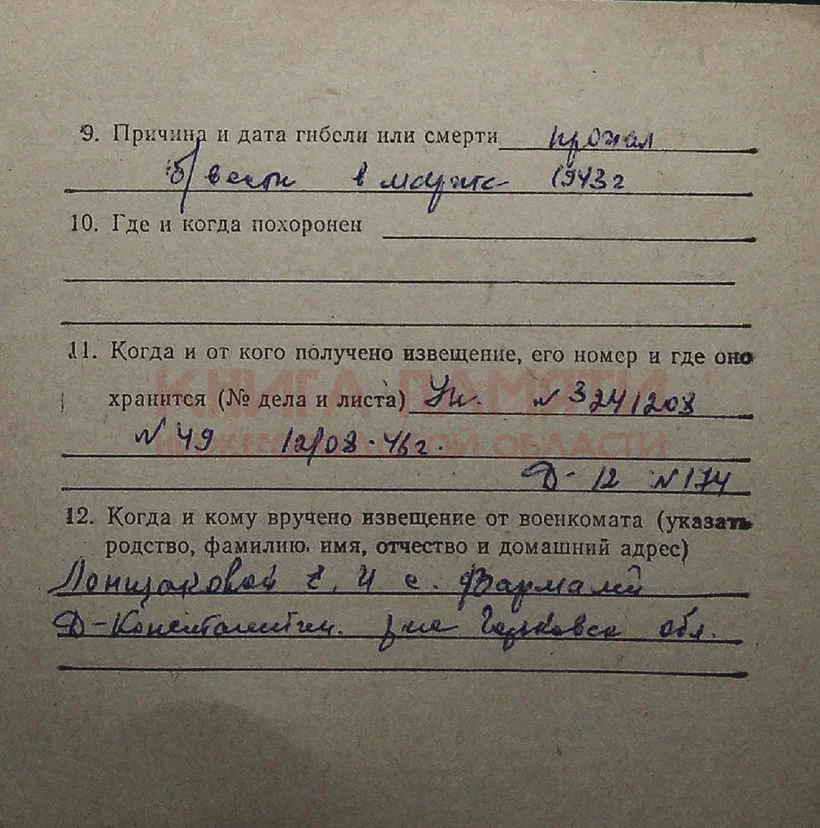 9. Причина и дата гибели или смерти пропал
б/вести в марте 1943 г
10. Где и когда похоронен
11. Когда и от кого получено извещение, его номер и где оно
КНИГА ПАМЯТИ
хранится (№ дела и листа) Уп. № 3241208
№ 49 12/08-46 г.
НИЖЕГОРОДСКОЙ ОБЛАСТИ
Д- 12 № 174
12. Когда и кому вручено извещение от военкомата (указать
родство, фамилию, имя, отчество и домашний адрес)
Лонщаковой Е. И с.
Д-Константин. р-не Горьковск обл.